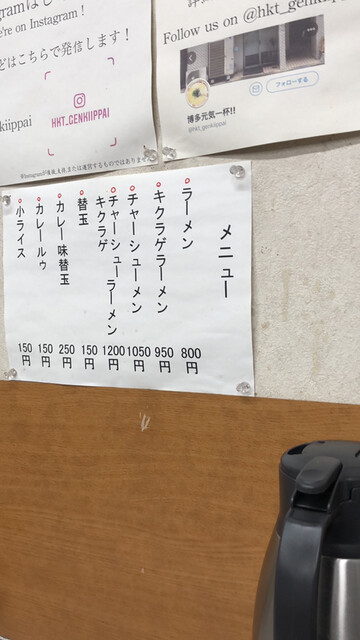 gramはじ
're on Instagram !
どはこちらで発信します！
kiippai
HKT_GENKIIPPAI
※Instagramが連載,支持または運営するものではありません
Follow us on @hkt_genkiip
フォローする
博多元気一杯!!
@hkt_genkiippai
メニュー
ラーメン 800円
キクラゲラーメン 950円
チャーシューメン 1050円
チャーシューラーメン
キクラゲ 1200円
替玉 150円
カレー味替玉 250円
カレールゥ 150円
小ライス 150円